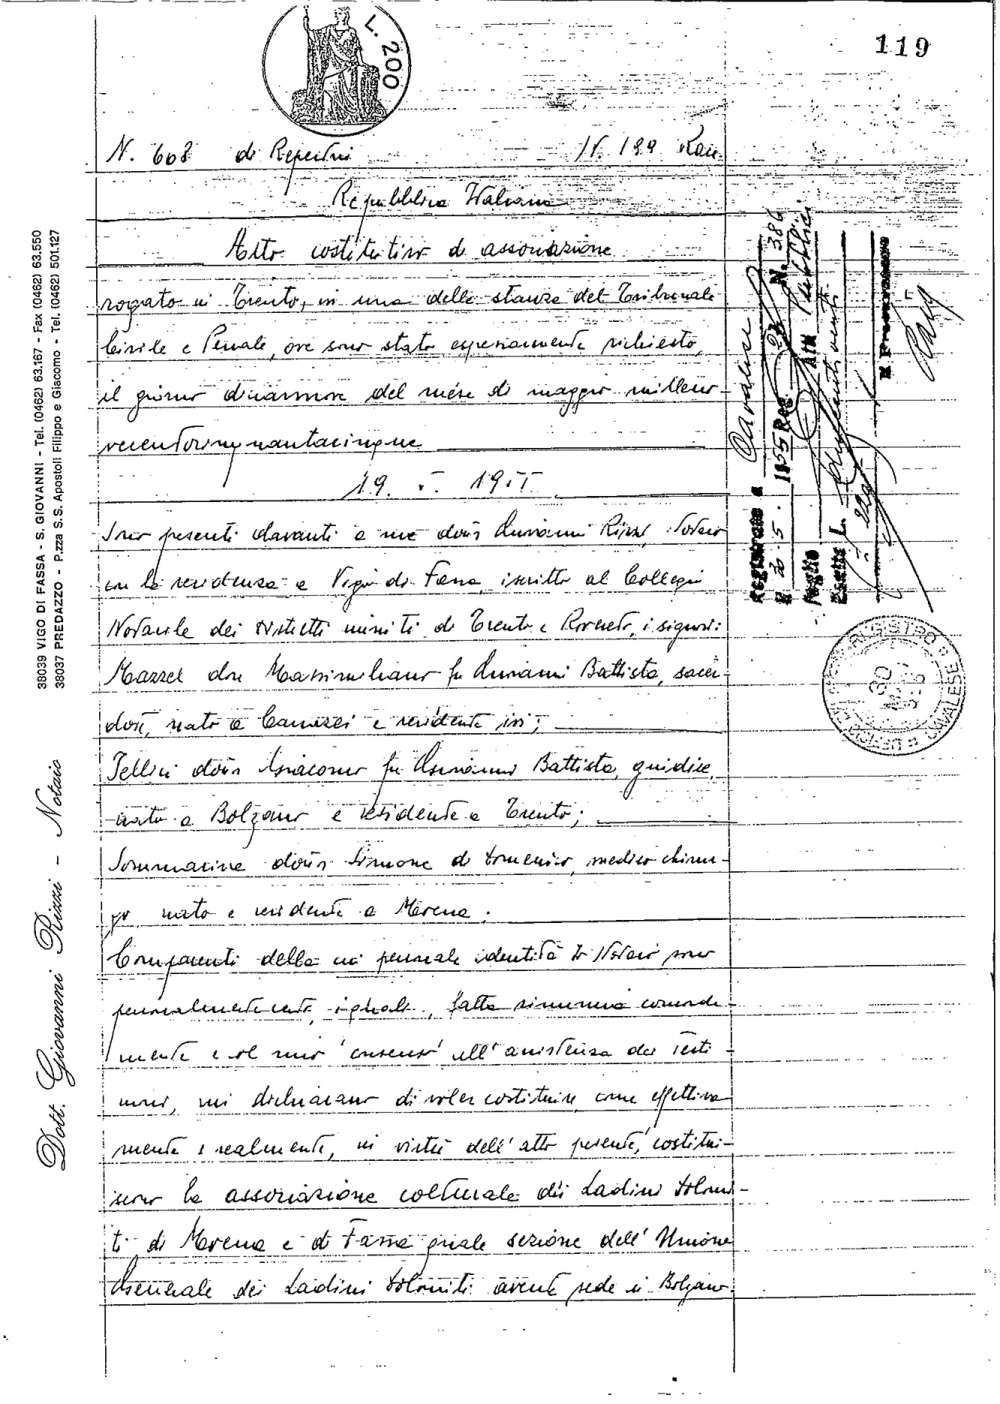 L. 200
119
N. 608 di Repertorio N. 199 Racc.
Repubblica Italiana
Atto costitutivo di associazione
rogato in Trento, in una delle stanze del Tribunale
Civile e Penale, ove sono stato espressamente richiesto,
il giorno diciannove del mese di maggio milleno-
vecentocinquantacinque
19. V. 1955
Sono presenti davanti a me dott. Giovanni Rizzi, Notaio
con la residenza a Vigo di Fassa, iscritto al Collegio
Notarile dei distretti riuniti di Trento e Rovereto, i signori:
Mazzel don Massimiliano fu Giovanni Battista, sacer-
dote, nato a Canazei e residente ivi;
Tellini dott. Giacomo fu Giovanni Battista, giudice,
nato a Bolzano e residente a Trento;
Sommariva dott. Simone di Domenico, medico chirur-
go nato e residente a Moena.
Comparenti della cui personale identità io Notaio sono
personalmente certo, i quali, fatta rinuncia concorde-
mente e col mio consenso all'assistenza dei testi-
moni, mi dichiarano di voler costituire, come effettiva-
mente e realmente, in virtù dell'atto presente, costitui-
scono la associazione colturale dei Ladini Dolomi-
ti di Moena e di Fassa quale sezione dell'Unione
Generale dei Ladini Dolomiti avente sede in Bolzano.
Registrato a Cavalese
il 20.5.1955 Reg. N. 386
Foglio Atti Pubblici
Esatte L.
UFFICIO REGISTRO CAVALESE
Dott. Giovanni Rizzi - Notaio
38039 VIGO DI FASSA - S. GIOVANNI - Tel. (0462) 63.167 - Fax (0462) 63.550
38037 PREDAZZO - P.zza S.S. Apostoli Filippo e Giacomo - Tel. (0462) 501.127